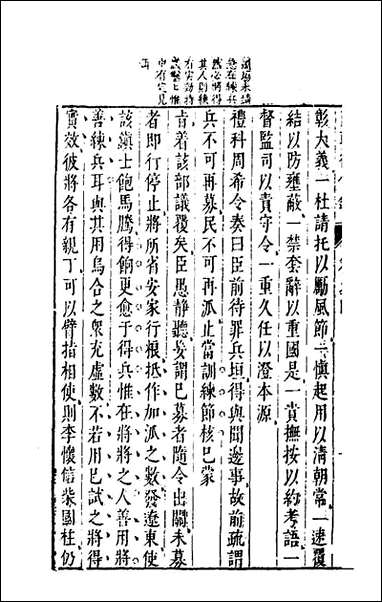 彰大義一杜請托以勵風節一慎起用以清朝常一速覆
結以防壅蔽一禁套辭以重國是一責撫按以約考語一
督監司以責守令一重久任以澄本源
禮科周希令奏曰臣前待罪兵垣得與聞邊事故前疏謂
兵不可再募民不可再派止當訓練節核已蒙
旨着該部議覆矣臣愚靜聽妄謂已募者隨令出關未募
者即行停止將所省安家行根抵作加派之數發遼東使
該鎮士飽馬騰得餉更愈于得兵惟在將將之人善用將
善練兵耳與其用烏合之衆充虛數不若用已試之將得
實效彼將各有親丁可以臂指相使則李懷信柴國柱仍